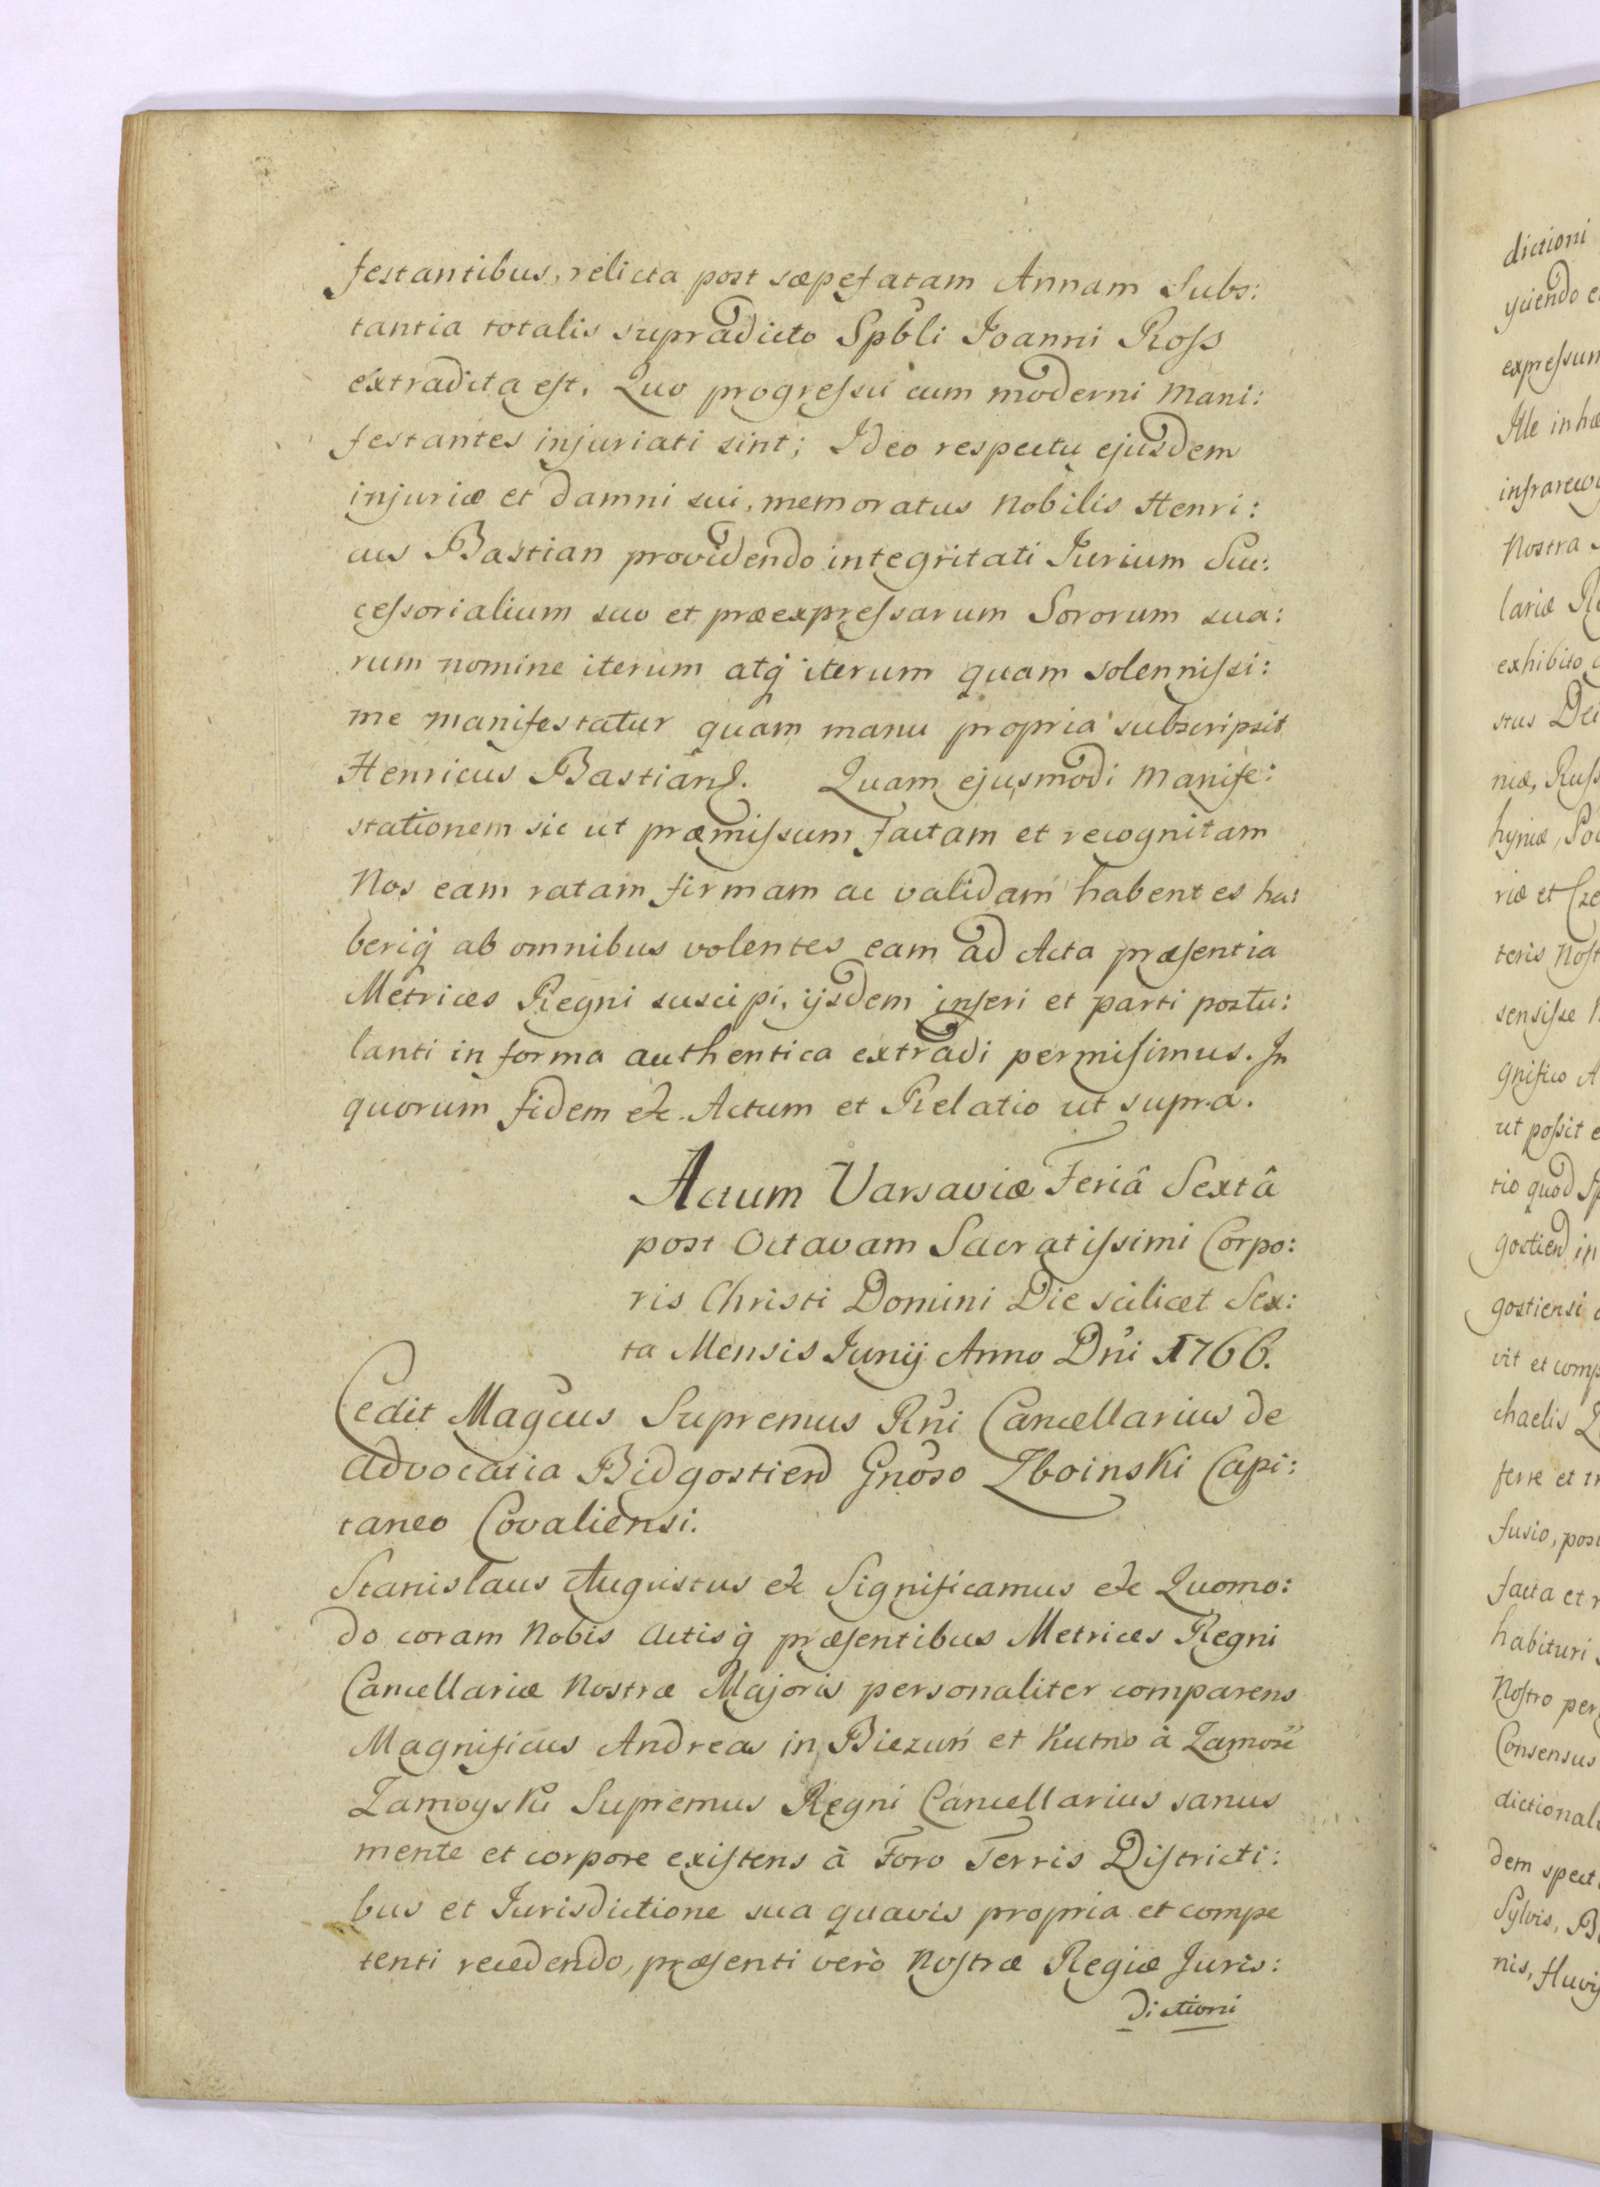 festantibus, relicta post sæpefatam Annam Subs:
tantia totalis supradicto Spbli Joanni Ross
extradita est. Quo progressu cum moderni Mani:
festantes injuriati sint; Ideo respectu ejusdem
injuriæ et damni sui, memoratus Nobilis Henri:
cus Bastian providendo integritati Jurium Suc:
cessorialium suo et præexpressarum Sororum sua:
rum nomine iterum atq iterum quam solennissi:
me manifestatur quam manu propria subscripsit
Henricus Bastian. Quam ejusmodi Manife:
stationem sic ut præmissum factam et recognitam
Nos eam ratam firmam ac validam habentes ha:
beriq ab omnibus volentes eam ad Acta præsentia
Metrices Regni suscipi, ijsdem inseri et parti postu:
lanti in forma authentica extradi permisimus. In
quorum fidem etc. Actum et Relatio ut supra.
Actum Varsaviæ Feriâ Sextâ
post Octavam Sacratissimi Corpo:
ris Christi Domini Die scilicet Sex:
ta Mensis Junij Anno Dni 1766.
Cedit Magcus Supremus Rni Cancellarius de
Advocatia Bidgostien Gnoso Zboinski Capi:
taneo Covaliensi.
Stanislaus Augustus etc Significamus etc Quomo:
do coram Nobis Actisq præsentibus Metrices Regni
Cancellariæ Nostræ Majoris personaliter comparens
Magnificus Andreas in Biezuń et Kutno à Zamoście
Zamoyski Supremus Regni Cancellarius sanus
mente et corpore existens à Foro Terris Districti:
bus et Jurisdictione sua quavis propria et compe
tenti recedendo, præsenti verò Nostræ Regiæ Juris:
dictioni
dictioni
expressum
Ille inhæ
Nostra
lariæ
exhibito
stus Dei
niæ, Russ
riæ et Cze
teris Nost
sensisse
gnifico A
ut possit e
tio quod
gostien in
gostiensi
vit et comp
chaelis
ferre et
fusio, post
facta et
habituri
Nostro per
Consensus
dictionali
dem spect
Sylvis, B
nis, Fluvij